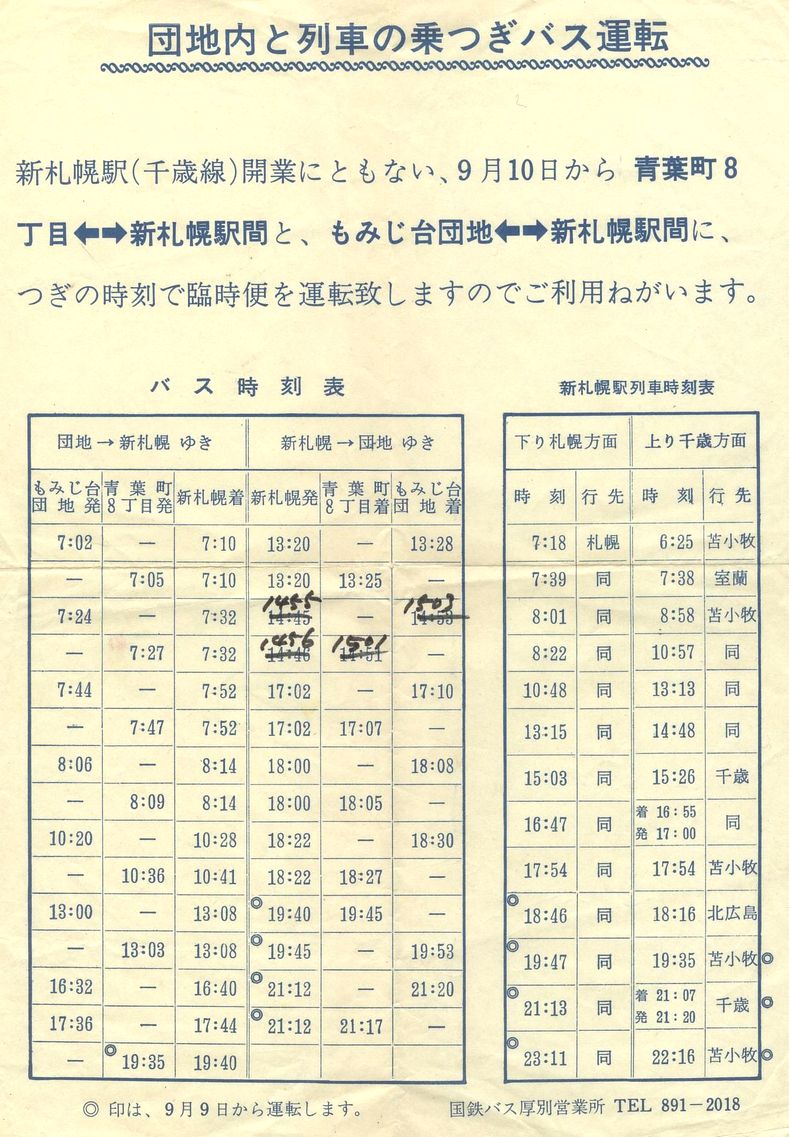 団地内と列車の乗つぎバス運転
新札幌駅(千歳線)開業にともない、9月10日から 青葉町8
丁目⬅➡新札幌駅間と、もみじ台団地⬅➡新札幌駅間に、
つぎの時刻で臨時便を運転致しますのでご利用ねがいます。
バス時刻表
団地→新札幌 ゆき 新札幌→団地 ゆき
もみじ台団地発 青葉町8丁目発 新札幌着 新札幌発 青葉町8丁目着 もみじ台団地着
7:02 — 7:10 13:20 — 13:28
— 7:05 7:10 13:20 13:25 —
1455 1503
7:24 — 7:32 14:45 — 14:53
1456 1501
— 7:27 7:32 14:46 14:51 —
7:44 — 7:52 17:02 — 17:10
— 7:47 7:52 17:02 17:07 —
8:06 — 8:14 18:00 — 18:08
— 8:09 8:14 18:00 18:05 —
10:20 — 10:28 18:22 — 18:30
— 10:36 10:41 18:22 18:27 —
13:00 — 13:08 ◎19:40 19:45 —
— 13:03 13:08 ◎19:45 — 19:53
16:32 — 16:40 ◎21:12 — 21:20
17:36 — 17:44 ◎21:12 21:17 —
— ◎19:35 19:40
新札幌駅列車時刻表
下り札幌方面 上り千歳方面
時刻 行先 時刻 行先
7:18 札幌 6:25 苫小牧
7:39 同 7:38 室蘭
8:01 同 8:58 苫小牧
8:22 同 10:57 同
10:48 同 13:13 同
13:15 同 14:48 同
15:03 同 15:26 千歳
16:47 同 着 16:55 発 17:00 同
17:54 同 17:54 苫小牧
◎18:46 同 18:16 北広島
◎19:47 同 19:35 苫小牧◎
◎21:13 同 着 21:07 発 21:20 千歳◎
◎23:11 同 22:16 苫小牧◎
◎印は、9月9日から運転します。
国鉄バス厚別営業所 TEL 891-2018